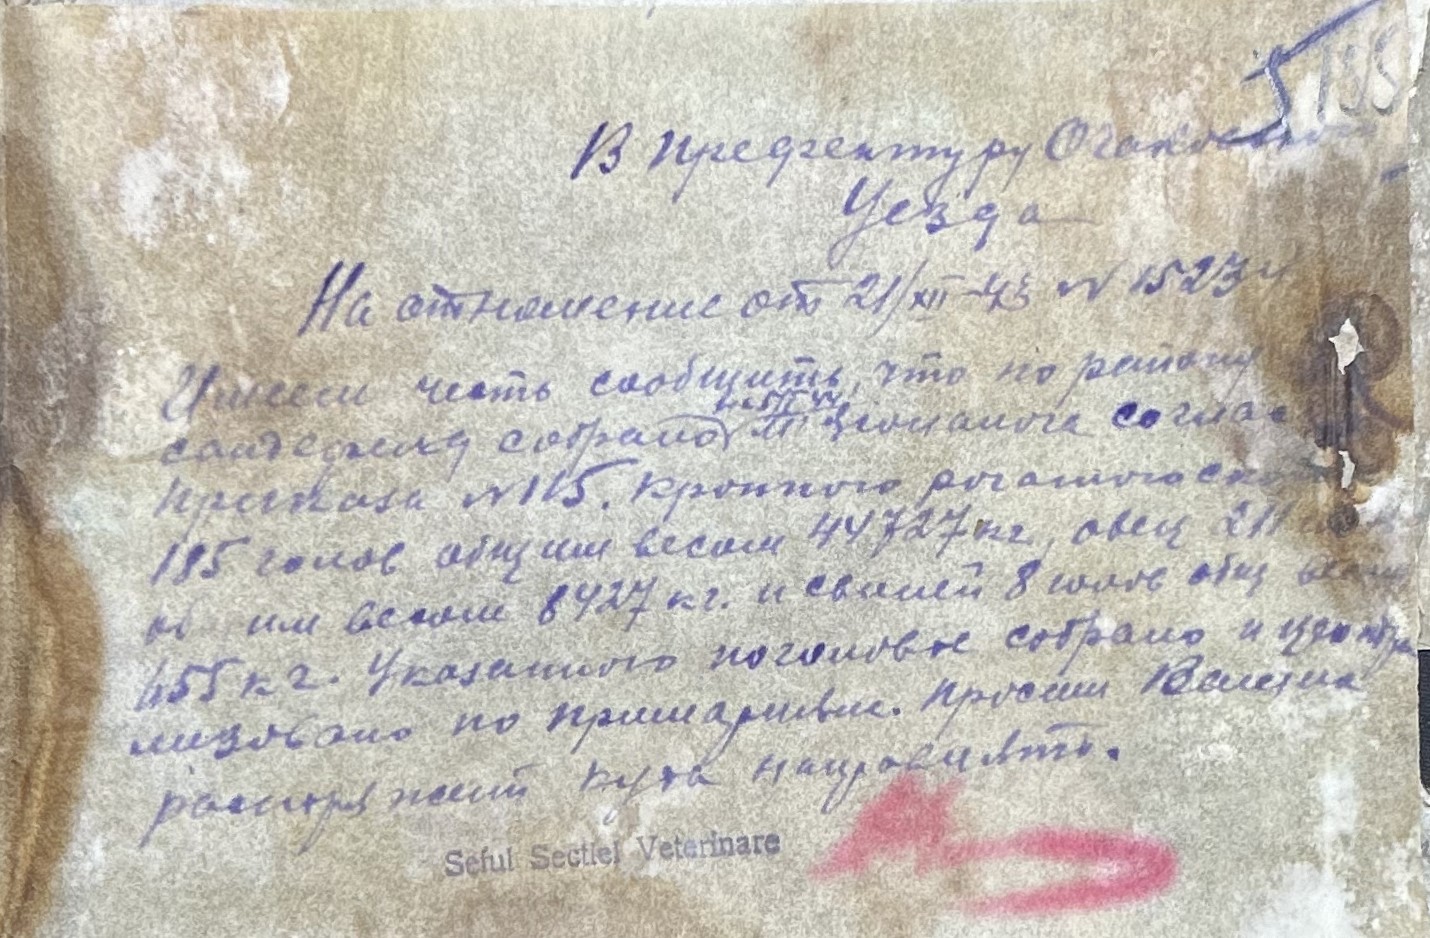 В префектуру Очаковского
Уезда
На отношение от 21/XII-43 № 15234
Имеем честь сообщить, что по району
на 5/I 44
собрано согласно
приказа № 115. Крупного рогатого скота
185 голов общим весом 44727 кг, овец 211
об им весом 8427 кг. и свиней 8 голов общ весом
655 кг. Указанного поголовье собрано и центра
лизовано по примариям. Просим Ваших
распоряжений куда направлять.
Seful Sectiei Veterinare